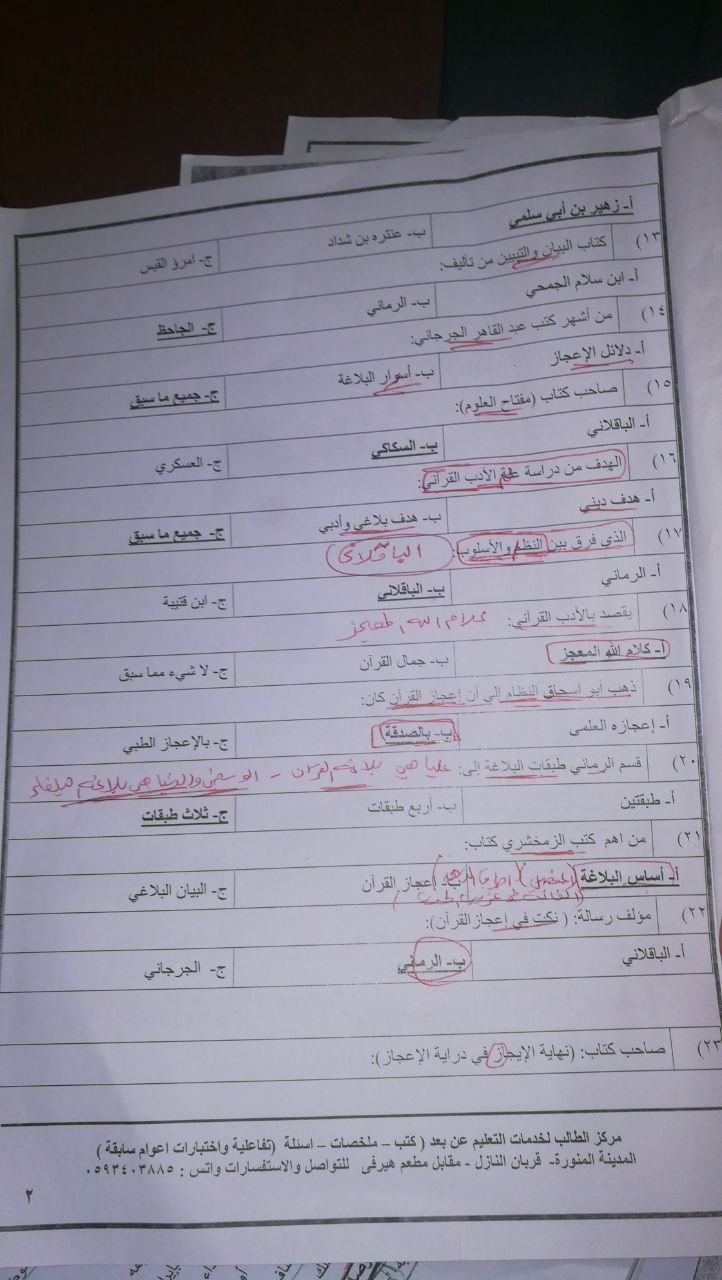 أ- زهير بن أبي سلمى ب- عنتره بن شداد ج- امرؤ القيس
١٣) كتاب البيان والتبيين من تأليف:
أ- ابن سلام الجمحي ب- الرماني ج- الجاحظ
١٤) من أشهر كتب عبد القاهر الجرجاني:
أ- دلائل الإعجاز ب- أسرار البلاغة ج- جميع ما سبق
١٥) صاحب كتاب (مفتاح العلوم):
أ- الباقلاني ب- السكاكي ج- العسكري
١٦) الهدف من دراسة علم الأدب القرآني:
أ- هدف ديني ب- هدف بلاغي وأدبي ج- جميع ما سبق
١٧) الذي فرق بين النظم والأسلوب: الباقلاني
أ- الرماني ب- الباقلاني ج- ابن قتيبة
١٨) يقصد بالأدب القرآني: كلام الله المعجز
أ- كلام الله المعجز ب- جمال القرآن ج- لا شيء مما سبق
١٩) ذهب أبو اسحاق النظام الى أن إعجاز القرآن كان:
أ- إعجازه العلمى ب- بالصدقة ج- بالإعجاز الطبي
٢٠) قسم الرماني طبقات البلاغة إلى: عليا هي بلاغة القرآن - الوسطى والدنيا هي بلاغة
أ- طبقتين ب- أربع طبقات ج- ثلاث طبقات
٢١) من اهم كتب الزمخشري كتاب:
أ- أساس البلاغة (المفصل) ب- إعجاز القرآن ج- البيان البلاغي
٢٢) مؤلف رسالة: ( نكت في إعجاز القرآن):
أ- الباقلاني ب- الرماني ج- الجرجاني
٢٣) صاحب كتاب: (نهاية الإيجاز في دراية الإعجاز):
مركز الطالب لخدمات التعليم عن بعد ( كتب – ملخصات – اسئلة (تفاعلية واختبارات اعوام سابقة )
المدينة المنورة- قربان النازل - مقابل مطعم هيرفى للتواصل والاستفسارات واتس : ٠٥٩٣٤٠٣٨٨٥
٢